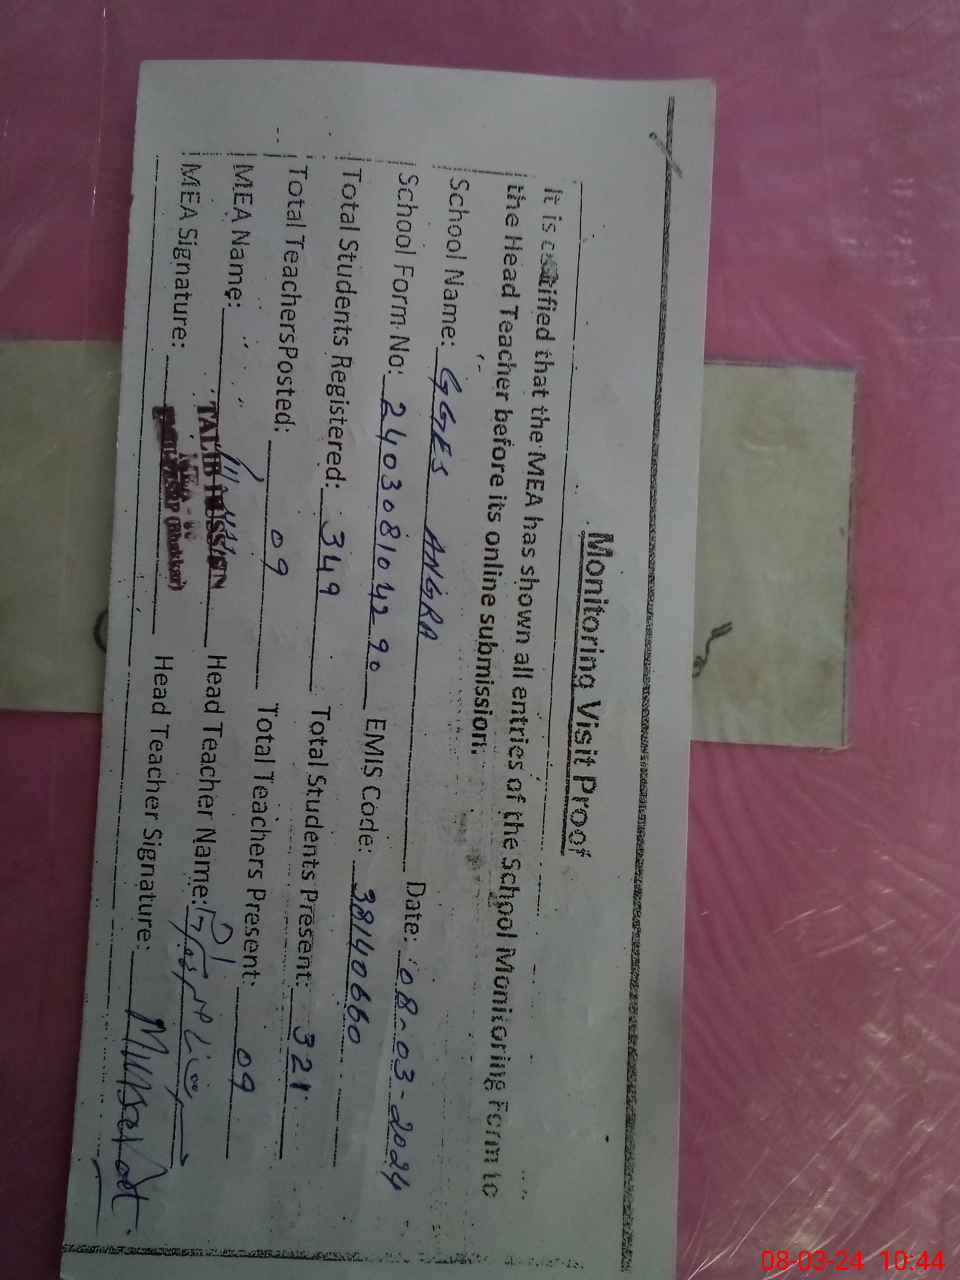 Monitoring Visit Proof
It is certified that the MEA has shown all entries of the School Monitoring Form to
the Head Teacher before its online submission.
School Name: GGES ANGRA Date: 08-03-2024
School Form No: 240308104290 EMIS Code: 38140660
Total Students Registered: 349 Total Students Present: 321
Total TeachersPosted: 09 Total Teachers Present: 09
MEA Name: TALIB HUSSAIN Head Teacher Name:
MEA Signature: MEA (Bhakkar) Head Teacher Signature:
08-03-24 10:44